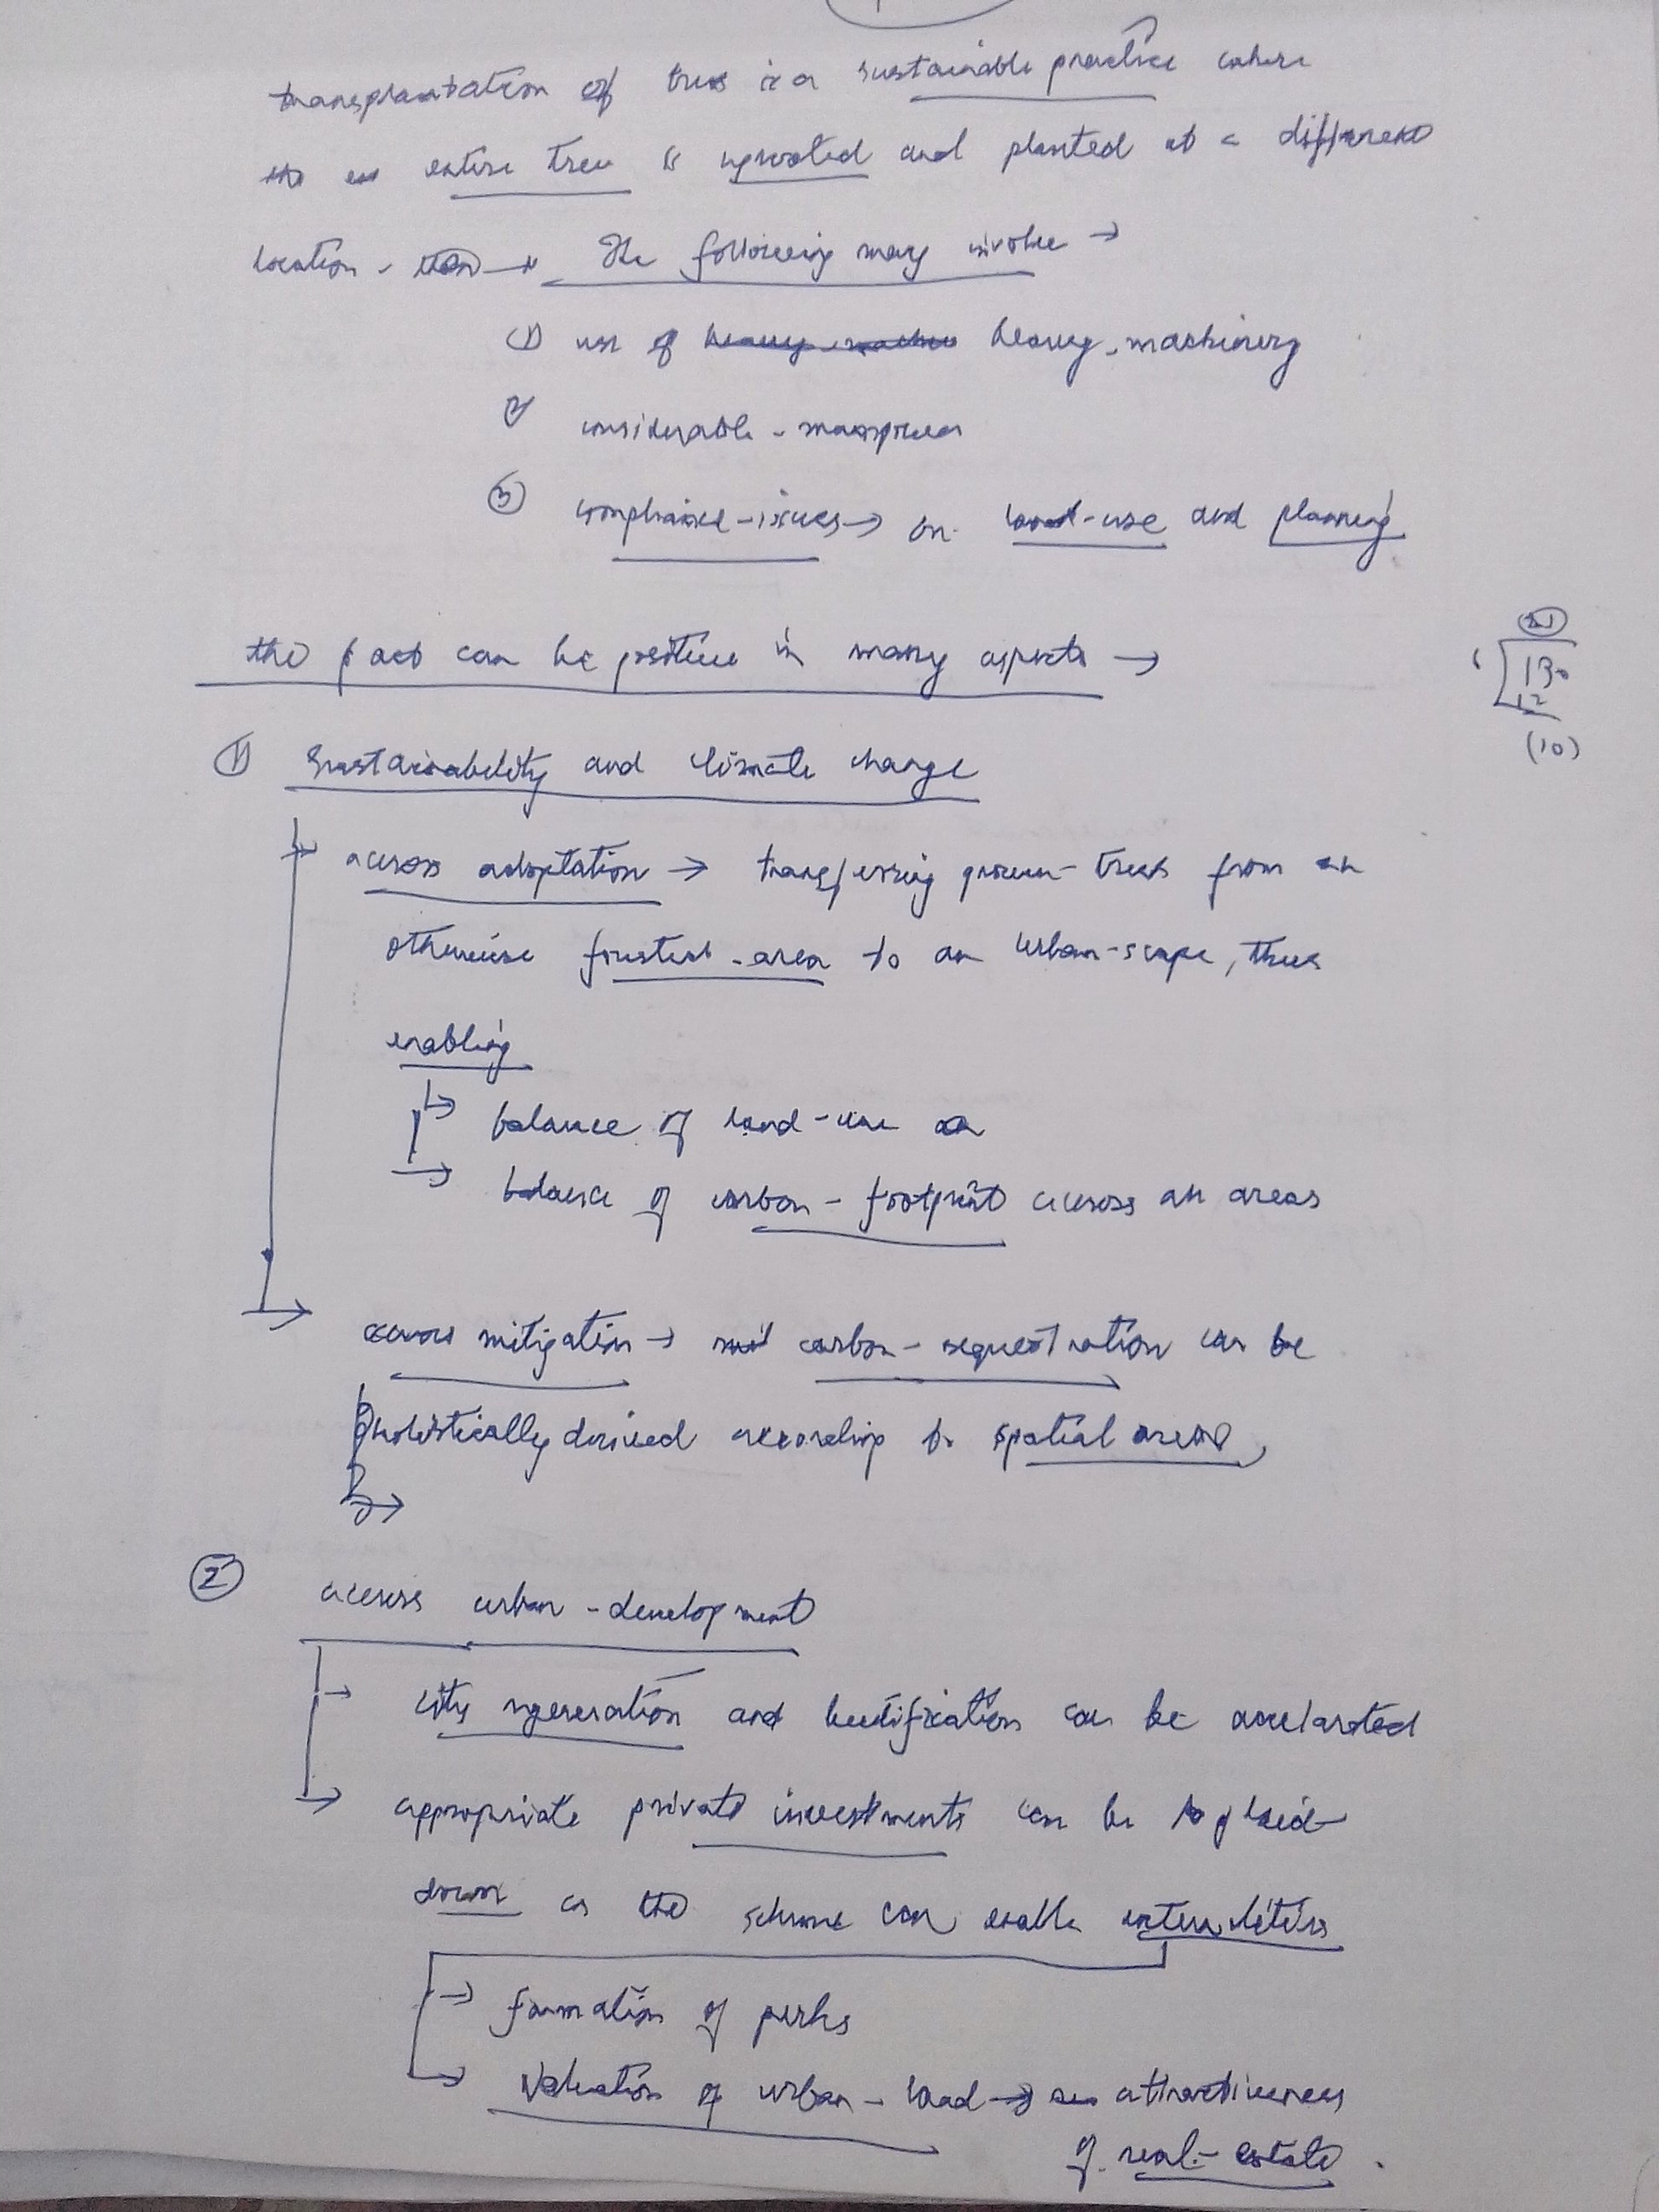 transplantation of trees is a sustainable practice where
the entire tree is uprooted and planted at a different
location - The following may involve →
1) use of heavy machinery
2) considerable - manpower
③ compliance-issues → on land-use and planning
the fact can be positive in many aspects →
1) Sustainability and climate change
across adaptation → transferring grown-trees from an
otherwise forested-area to an urban-scape, thus
enabling
→ balance of land-use
→ balance of carbon-footprint across all areas
→ across mitigation → carbon-sequestration can be
holistically derived according to spatial areas,
② across urban-development
→ city regeneration and beutification can be accelarated
→ appropriate private investments can be laid
down as the scheme can enable
→ formation of parks
→ Valuation of urban-land → attractiveness
of real-estate.
6 130
12
(10)